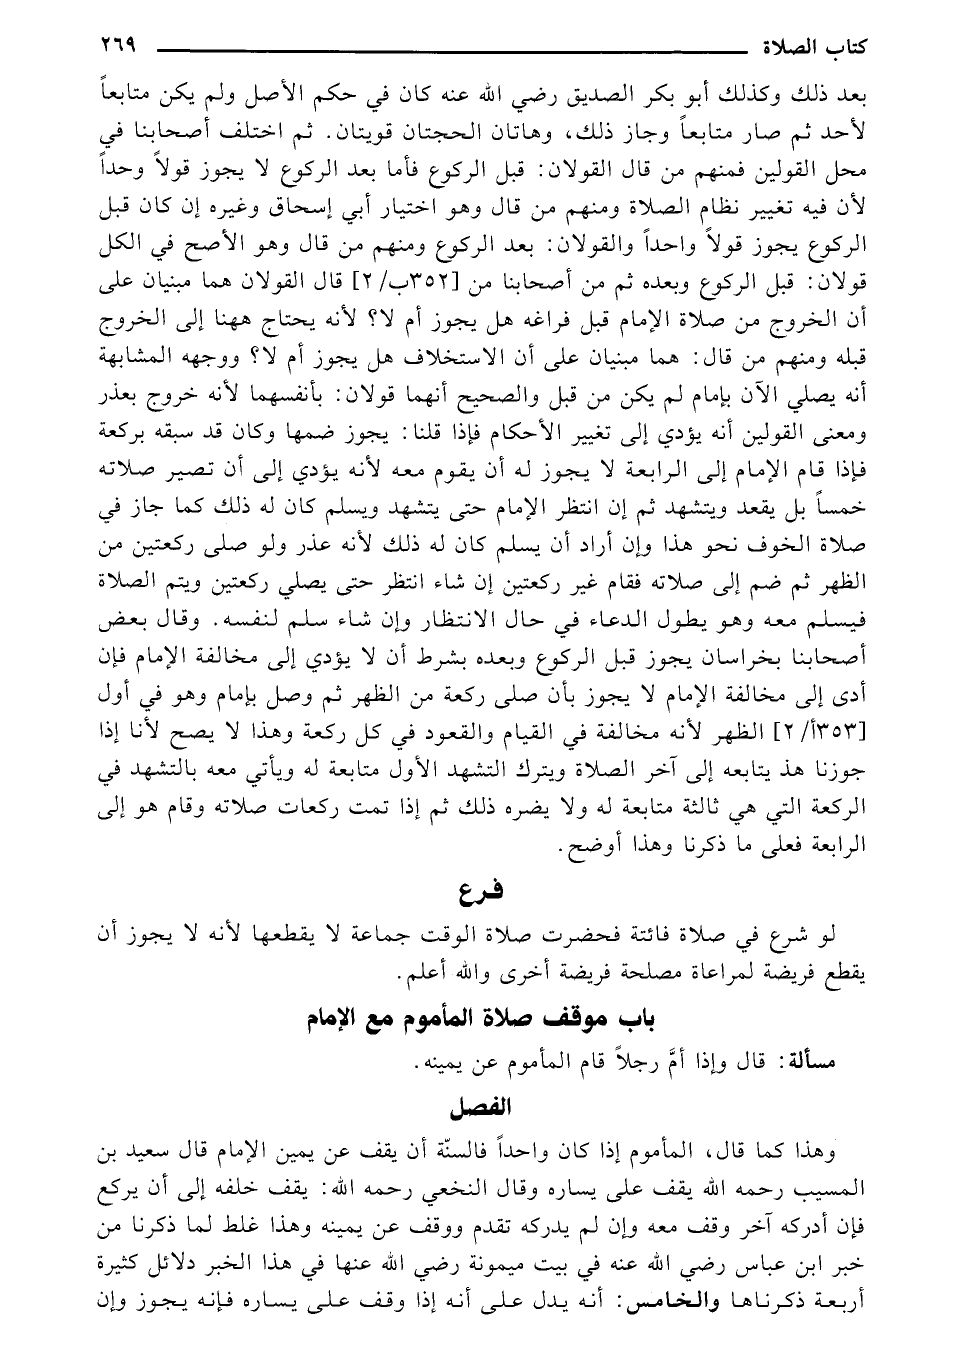 كتاب الصلاة ٢٦٩
بعد ذلك وكذلك أبو بكر الصديق رضي الله عنه كان في حكم الأصل ولم يكن متابعاً
لأحد ثم صار متابعاً وجاز ذلك، وهاتان الحجتان قويتان. ثم اختلف أصحابنا في
محل القولين فمنهم من قال القولان: قبل الركوع فأما بعد الركوع لا يجوز قولاً وحداً
لأن فيه تغيير نظام الصلاة ومنهم من قال وهو اختيار أبي إسحاق وغيره إن كان قبل
الركوع يجوز قولاً واحداً والقولان: بعد الركوع ومنهم من قال وهو الأصح في الكل
قولان: قبل الركوع وبعده ثم من أصحابنا من [٣٥٢ب/ ٢] قال القولان هما مبنيان على
أن الخروج من صلاة الإمام قبل فراغه هل يجوز أم لا؟ لأنه يحتاج ههنا إلى الخروج
قبله ومنهم من قال: هما مبنيان على أن الاستخلاف هل يجوز أم لا؟ ووجهه المشابهة
أنه يصلي الآن بإمام لم يكن من قبل والصحيح أنهما قولان: بأنفسهما لأنه خروج بعذر
ومعنى القولين أنه يؤدي إلى تغيير الأحكام فإذا قلنا: يجوز ضمها وكان قد سبقه بركعة
فإذا قام الإمام إلى الرابعة لا يجوز له أن يقوم معه لأنه يؤدي إلى أن تصير صلاته
خمساً بل يقعد ويتشهد ثم إن انتظر الإمام حتى يتشهد ويسلم كان له ذلك كما جاز في
صلاة الخوف نحو هذا وإن أراد أن يسلم كان له ذلك لأنه عذر ولو صلى ركعتين من
الظهر ثم ضم إلى صلاته فقام غير ركعتين إن شاء انتظر حتى يصلي ركعتين ويتم الصلاة
فيسلم معه وهو يطول الدعاء في حال الانتظار وإن شاء سلم لنفسه. وقال بعض
أصحابنا بخراسان يجوز قبل الركوع وبعده بشرط أن لا يؤدي إلى مخالفة الإمام فإن
أدى إلى مخالفة الإمام لا يجوز بأن صلى ركعة من الظهر ثم وصل بإمام وهو في أول
[٣٥٣أ/ ٢] الظهر لأنه مخالفة في القيام والقعود في كل ركعة وهذا لا يصح لأنا إذا
جوزنا هذ يتابعه إلى آخر الصلاة ويترك التشهد الأول متابعة له ويأتي معه بالتشهد في
الركعة التي هي ثالثة متابعة له ولا يضره ذلك ثم إذا تمت ركعات صلاته وقام هو إلى
الرابعة فعلى ما ذكرنا وهذا أوضح.
فرع
لو شرع في صلاة فائتة فحضرت صلاة الوقت جماعة لا يقطعها لأنه لا يجوز أن
يقطع فريضة لمراعاة مصلحة فريضة أخرى والله أعلم.
باب موقف صلاة المأموم مع الإمام
مسألة: قال وإذا أمَّ رجلاً قام المأموم عن يمينه.
الفصل
وهذا كما قال، المأموم إذا كان واحداً فالسنّة أن يقف عن يمين الإمام قال سعيد بن
المسيب رحمه الله يقف على يساره وقال النخعي رحمه الله: يقف خلفه إلى أن يركع
فإن أدركه آخر وقف معه وإن لم يدركه تقدم ووقف عن يمينه وهذا غلط لما ذكرنا من
خبر ابن عباس رضي الله عنه في بيت ميمونة رضي الله عنها في هذا الخبر دلائل كثيرة
أربعة ذكرناها والخامس: أنه يدل على أنه إذا وقف على يساره فإنه يجوز وإن